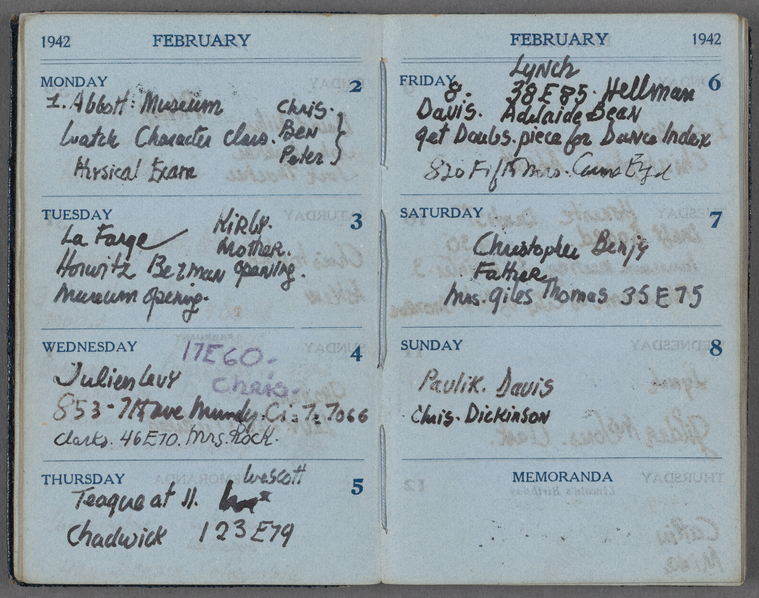 1942 FEBRUARY
MONDAY 2
1. Abbott: Museum Chris.
Watch Character class. Ben
Physical Exam Peter
TUESDAY 3
La Farge Kirby.
Mother.
Horwitz Berman opening.
Museum opening.
WEDNESDAY 4
17E60.
Chris.
Julien Levy
853-7th ave Mundy. Ci. 7.7066
Clarks. 46E70. Mrs. Rock.
THURSDAY 5
Wescott
Teague at 11.
Chadwick 123 E79
FEBRUARY 1942
FRIDAY 6
Lynch
8. 38E85. Hellman
Davis. Adelaide Bean
get Doubs. piece for Dance Index
820 Fifth Mrs.
SATURDAY 7
Christopher Benjy
Father
Mrs. Giles Thomas 35E75
SUNDAY 8
Pavlik. Davis
Chris. Dickinson
MEMORANDA